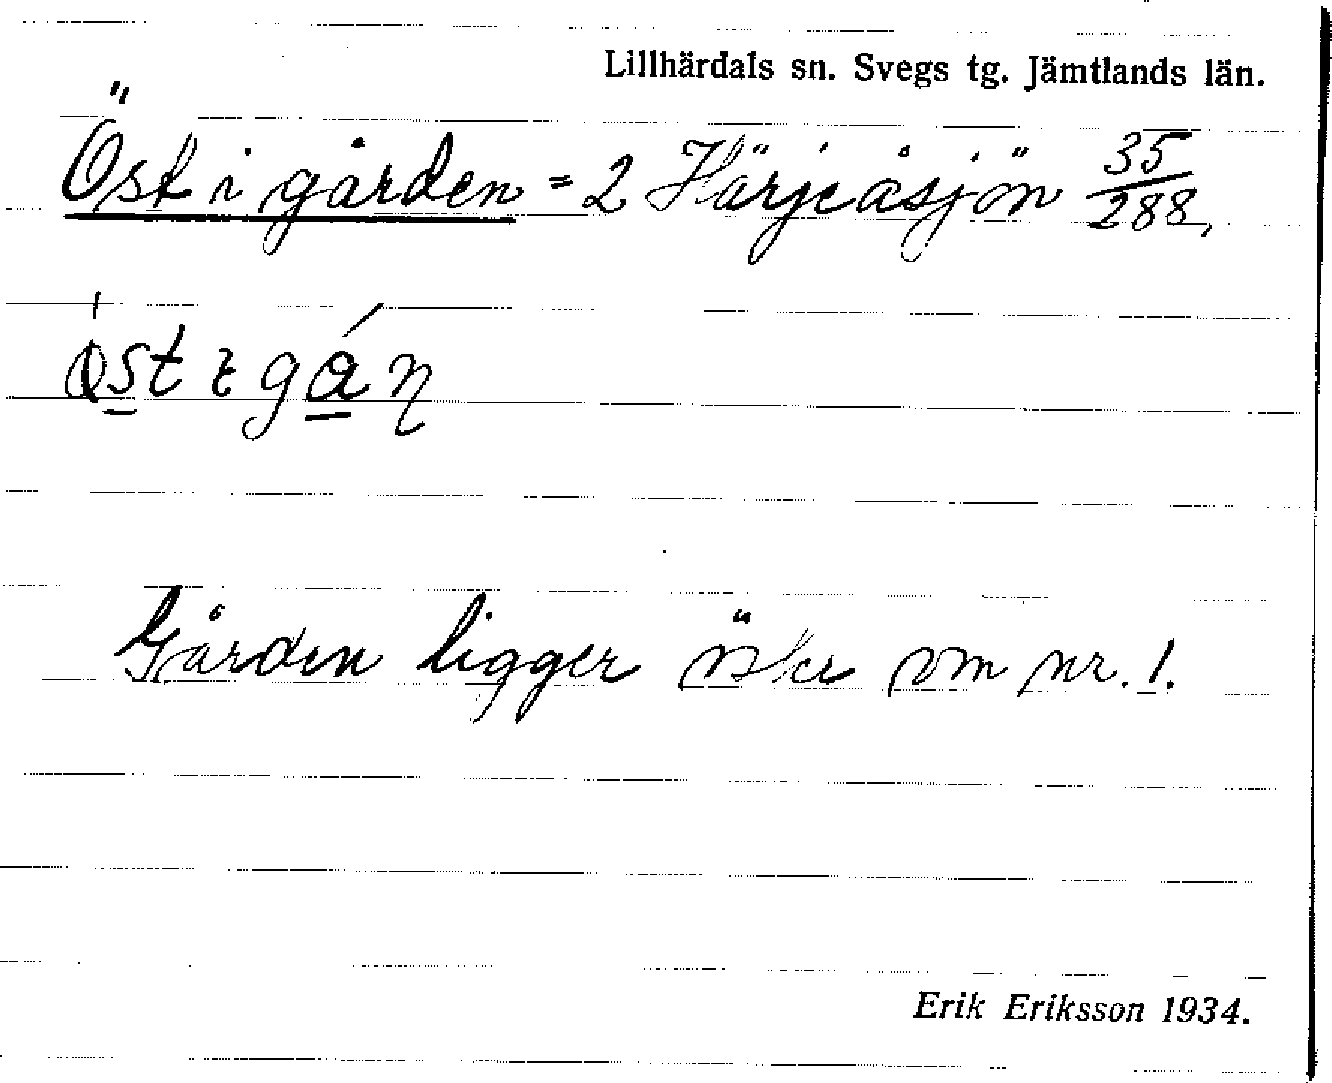 Lillhärdals sn. Svegs tg. Jämtlands län.
Öst i gården = 2 Härjeåsjön 35/288,
Gården ligger öster om nr. 1.
Erik Eriksson 1934.